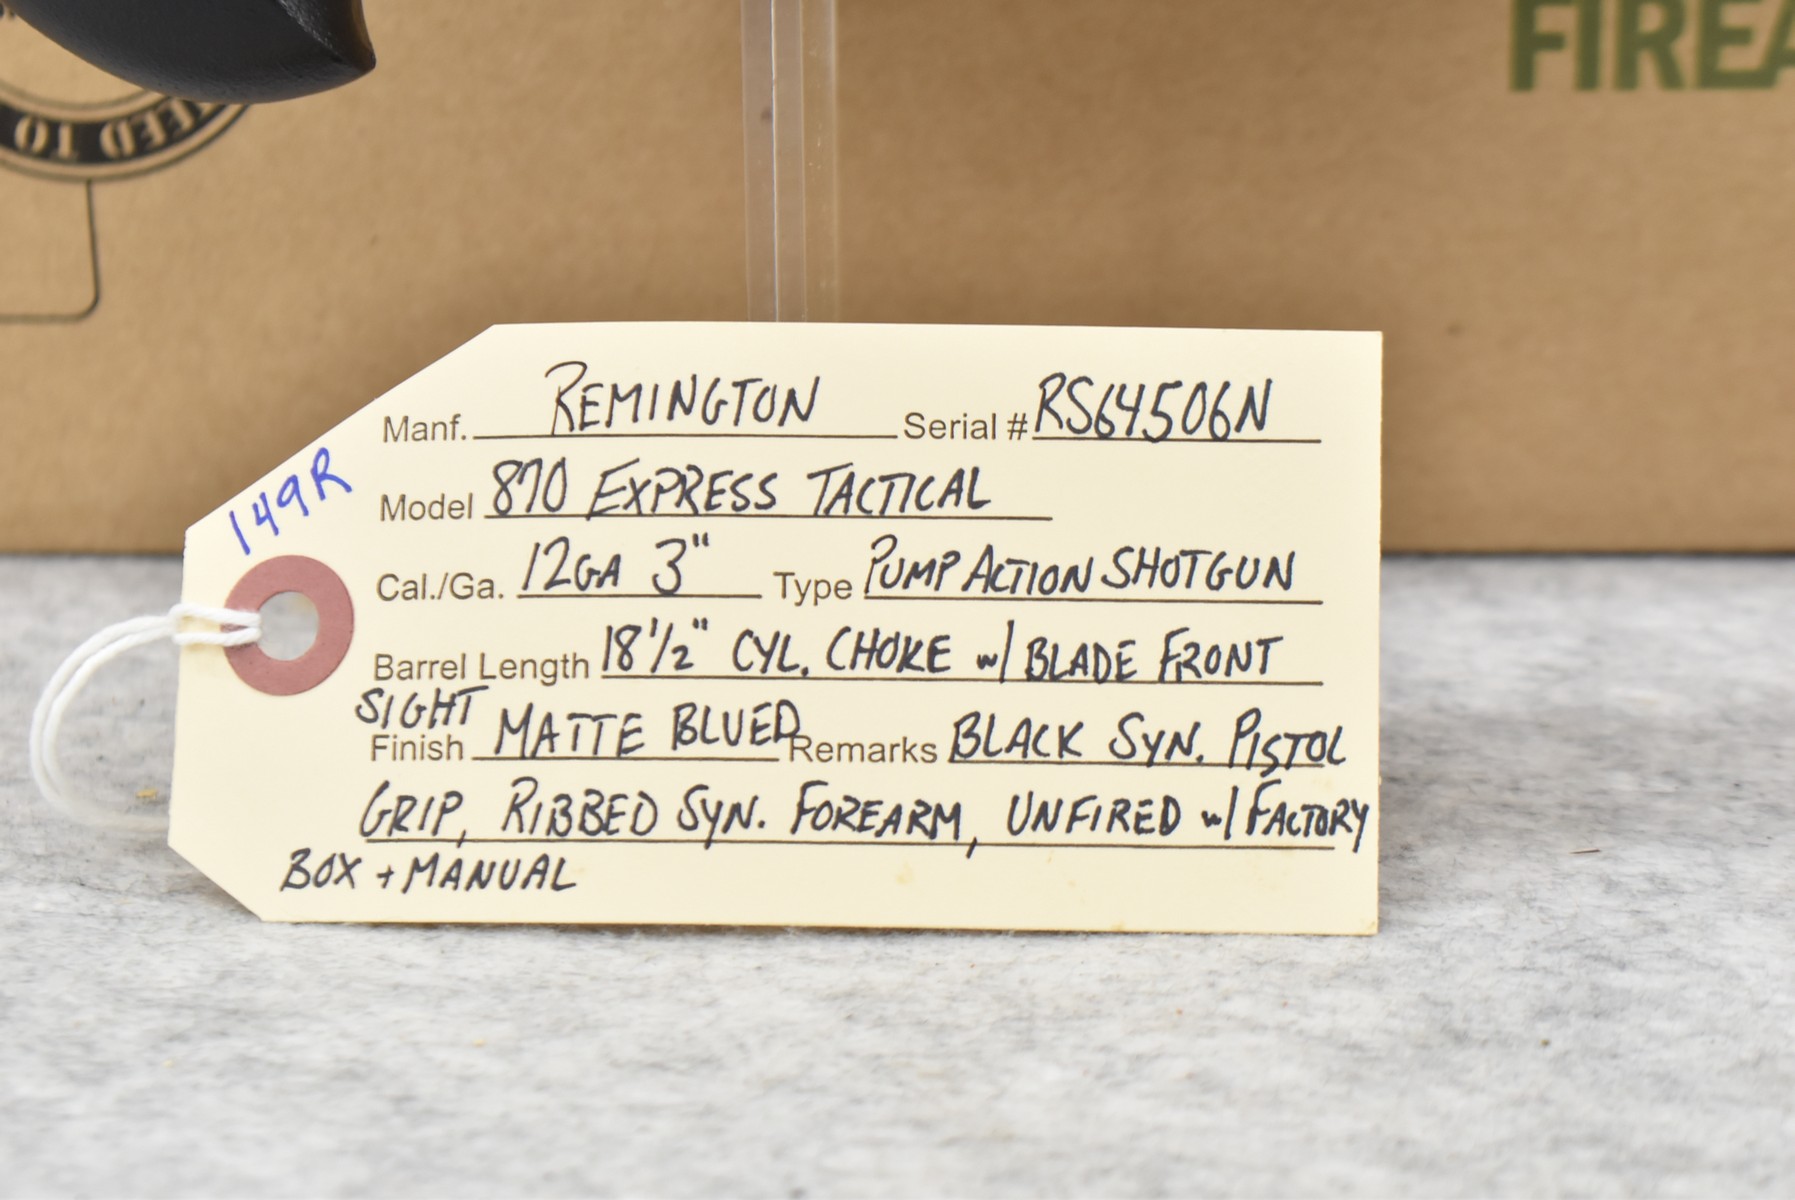 FIREA
TEED TO
149R
Manf. REMINGTON Serial # RS64506N
Model 870 EXPRESS TACTICAL
Cal./Ga. 12GA 3" Type PUMP ACTION SHOTGUN
Barrel Length 18 1/2" CYL. CHOKE w/ BLADE FRONT
SIGHT
Finish MATTE BLUED Remarks BLACK SYN. PISTOL
GRIP, RIBBED SYN. FOREARM, UNFIRED w/ FACTORY
BOX + MANUAL